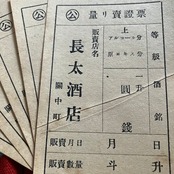 公 量り賣證 公
等級 酒銘
上 分
アルコール分
原エキス分
・ 圓 錢
販賣店名
長太酒店
關中町
販賣月日 月 日
販賣數量 斗 升